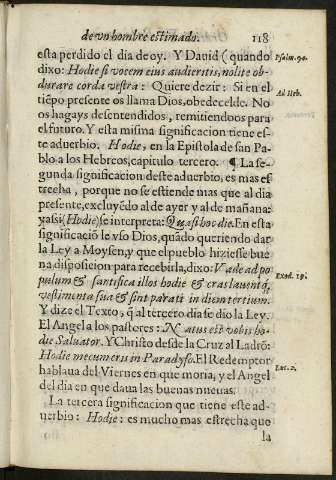 de vn hombre estimado. 118
esta perdido el dia de oy. Y David (quando Psalm. 94.
dixo: Hodie si vocem eius audieritis, nolite ob-
durare corda vestra: Quiere dezir: Si en el Ad Heb.
tiẽpo presente os llama Dios, obedecelde. No
os hagays desentendidos, remitiendoos para
el futuro. Y esta misma significacion tiene es-
te adverbio. Hodie, en la Epistola de san Pa-
blo a los Hebreos, capitulo tercero. ¶ La se-
gunda significacion deste aduerbio, es mas es-
trecha, porque no se estiende mas que al dia
presente, excluyẽdo al de ayer y al de mañana:
y assi (Hodie) se interpreta: Quasi hoc die. En esta
significaciõ le vso Dios, quãdo queriendo dar
la Ley a Moysen, y que el pueblo hiziesse bue
na disposicion para recebirla, dixo: Vade ad po
pulum & santifica illos hodie & cras lauentq́; Exod. 19.
vestimenta sua & sint parati in diem tertium.
Y dize el Texto, q̃ al tercero dia se dio la Ley.
El Angel a los pastores: Natus est vobis ho-
die Saluator. Y Christo desde la Cruz al Ladrõ:
Hodie mecum eris in Paradyso. El Redemptor Luc. 2.
hablaua del Viernes en que moria, y el Angel
del dia en que daua las buenas nueuas.
La tercera significacion que tiene este ad-
uerbio: Hodie: es mucho mas estrecha que
la